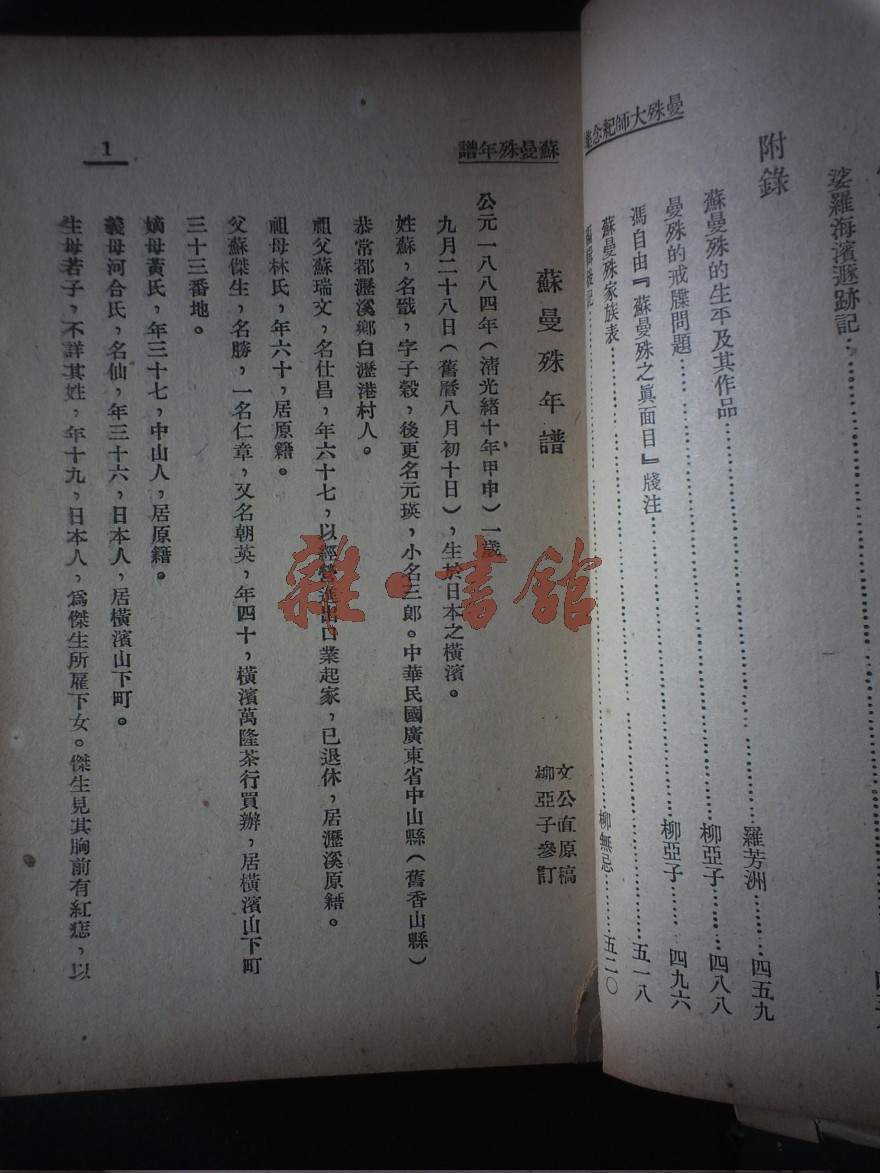 曼殊大師紀念集
娑羅海濱遯跡記
附錄
蘇曼殊的生平及其作品………羅芳洲………四五九
曼殊的戒牒問題………柳亞子………四八八
馮自由『蘇曼殊之眞面目』牋注………柳亞子………四九六
蘇曼殊家族表………五一八
柳無忌………五二〇
蘇曼殊年譜
1
蘇曼殊年譜
文公直原稿
柳亞子參訂
公元一八八四年(清光緒十年甲申)一歲
九月二十八日(舊曆八月初十日),生於日本之橫濱。
姓蘇,名戩,字子穀,後更名元瑛,小名三郎。中華民國廣東省中山縣(舊香山縣)
恭常都瀝溪鄉白瀝港村人。
祖父蘇瑞文,名仕昌,年六十七,以經營進出口業起家,已退休,居瀝溪原籍。
祖母林氏,年六十,居原籍。
父蘇傑生,名勝,一名仁章,又名朝英,年四十,橫濱萬隆茶行買辦,居橫濱山下町
三十三番地。
嫡母黃氏,年三十七,中山人,居原籍。
義母河合氏,名仙,年三十六,日本人,居橫濱山下町。
生母若子,不詳其姓,年十九,日本人,爲傑生所雇下女。傑生見其胸前有紅痣,以
雜·書館